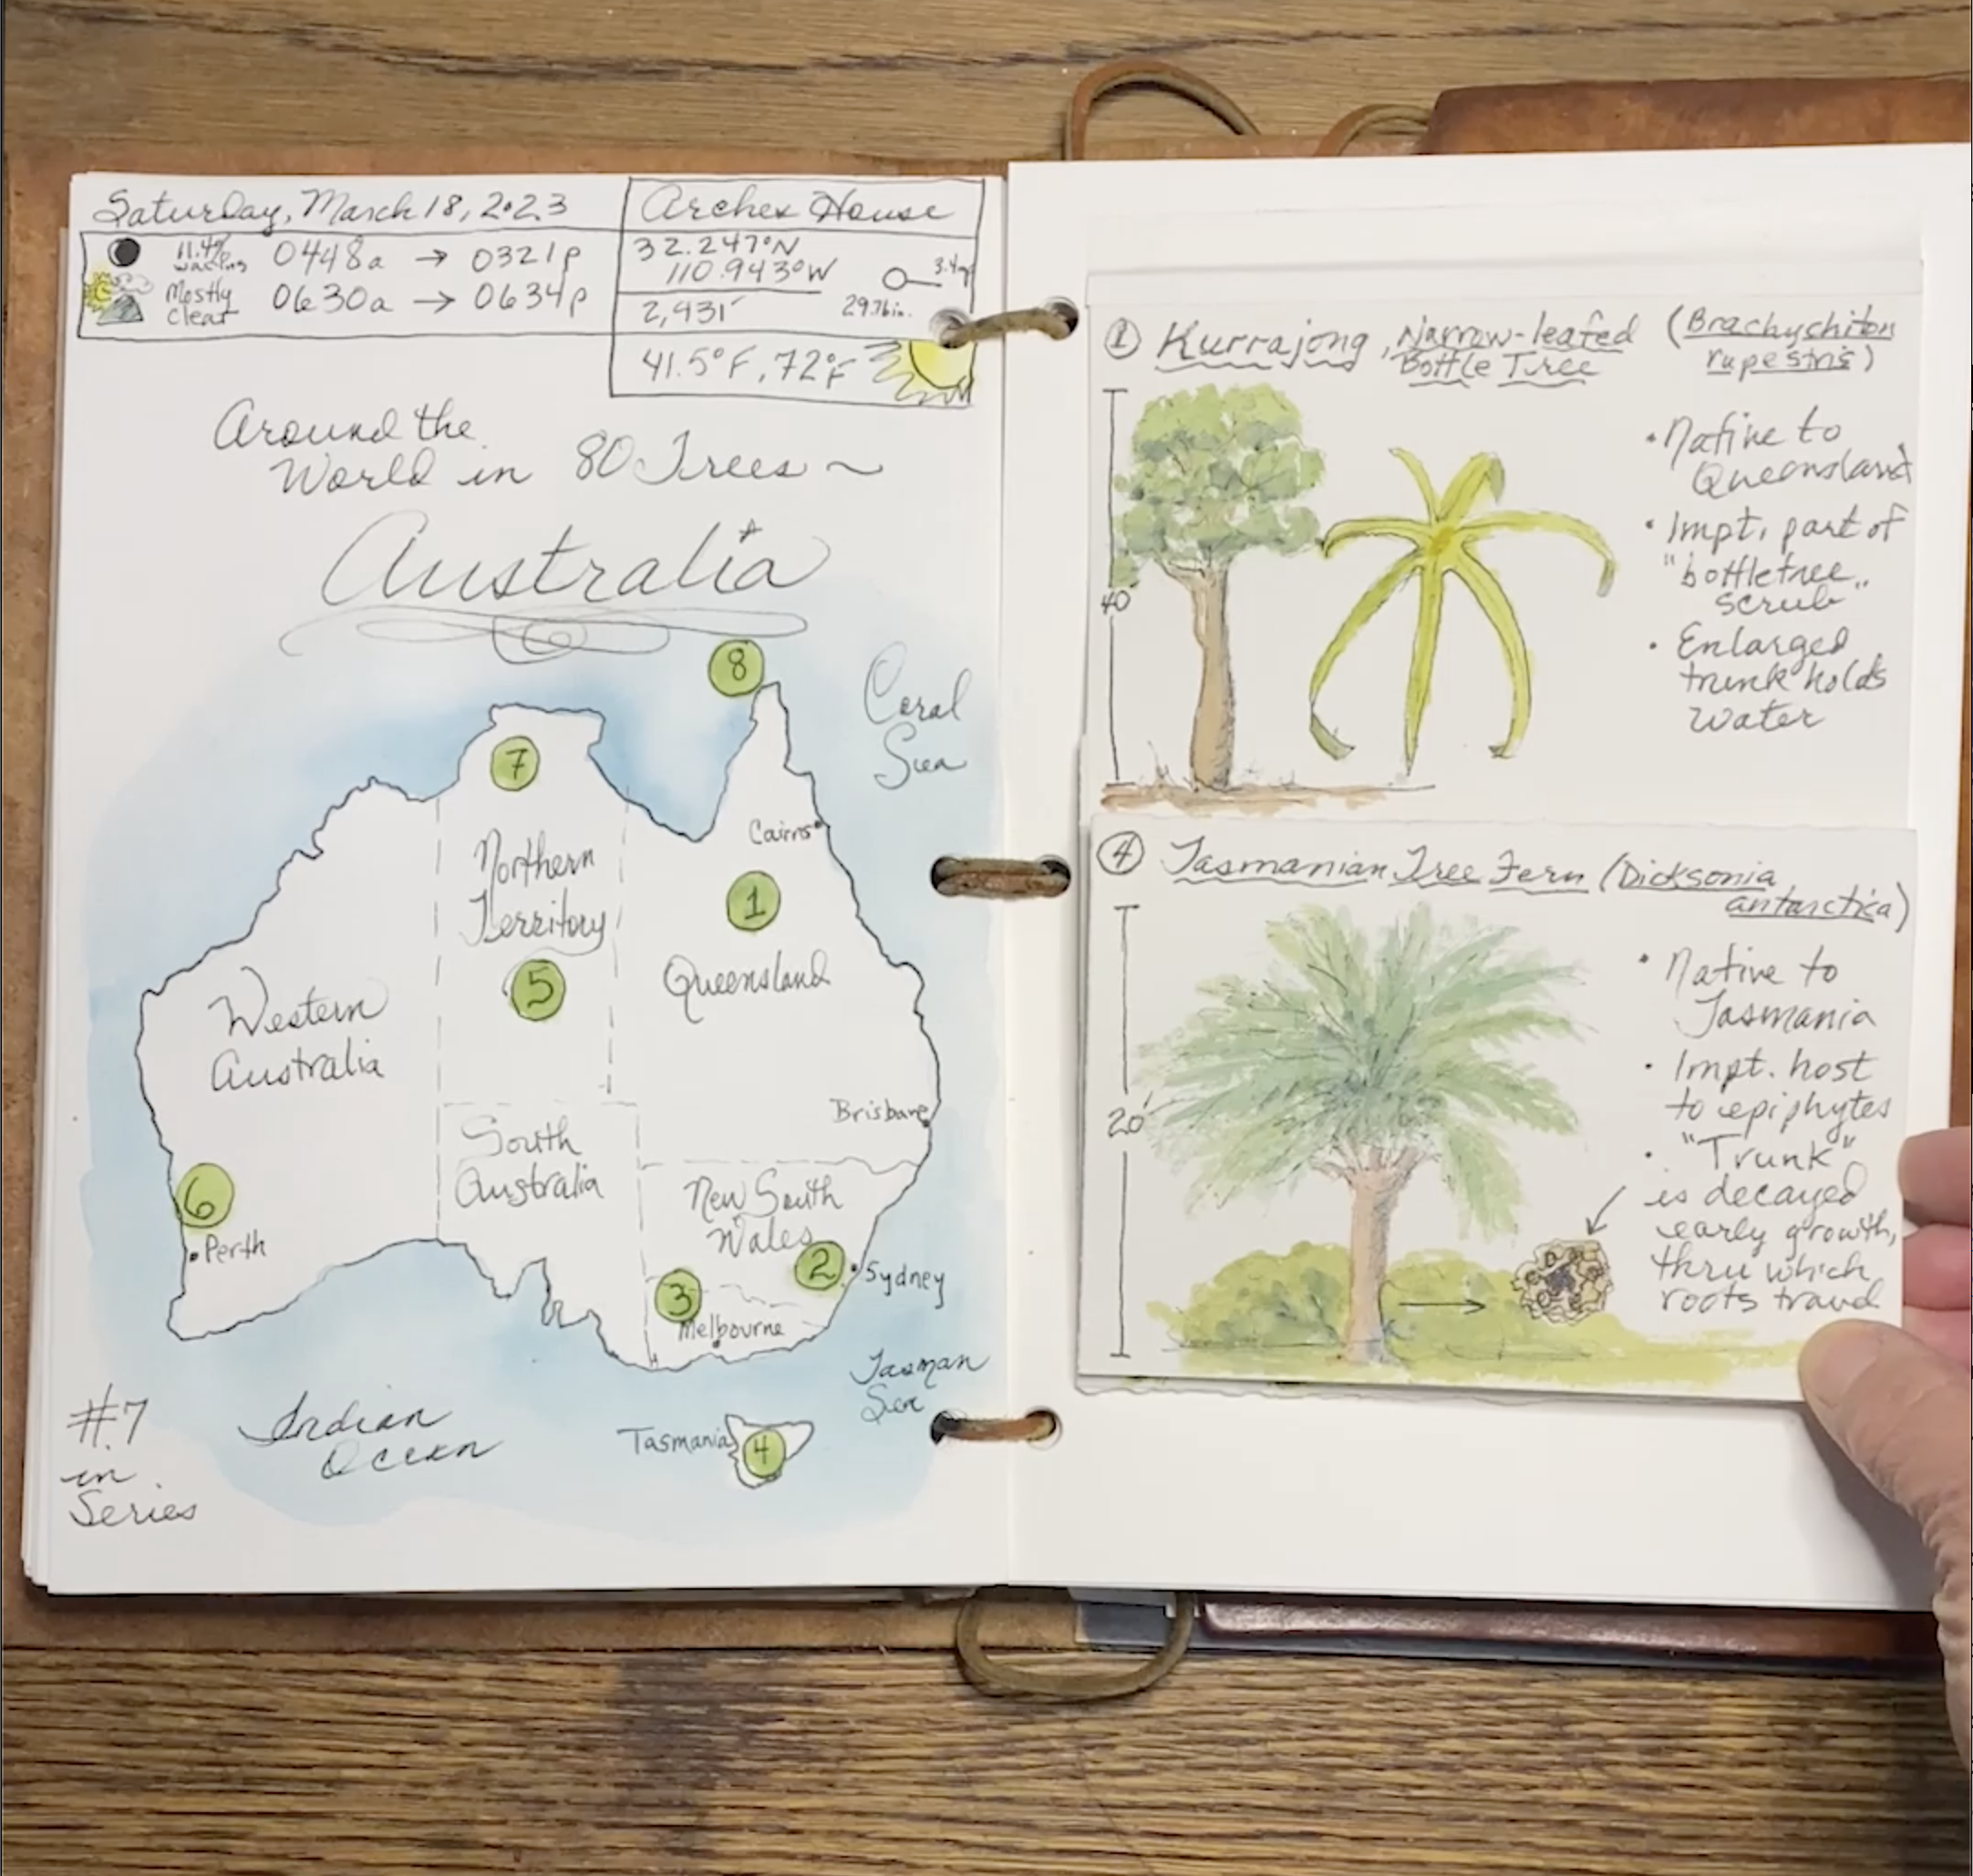 Saturday, March 18, 2023
Archex House
11.4% waning 0448a → 0321p
Mostly clear 0630a → 0634p
32.247°N
110.943°W
2,431'
29.76in.
41.5°F, 72°F
Around the
World in 80 Trees ~
Australia
8
Coral
Sea
7
Cairns
Northern
Territory
1
5
Queensland
Western
Australia
Brisbane
South
Australia
New South
Wales
6
Perth
2
Sydney
3
Melbourne
Tasman
Sea
#7
in
Series
Indian
Ocean
Tasmania
4
1 Kurrajong, Narrow-leafed
Bottle Tree
(Brachychiton
rupestris)
40'
• Native to
Queensland
• Impt. part of
"bottletree
scrub"
• Enlarged
trunk holds
water
4 Tasmanian Tree Fern (Dicksonia
antarctica)
20'
• Native to
Tasmania
• Impt. host
to epiphytes
• "Trunk"
is decayed
early growth,
thru which
roots travel